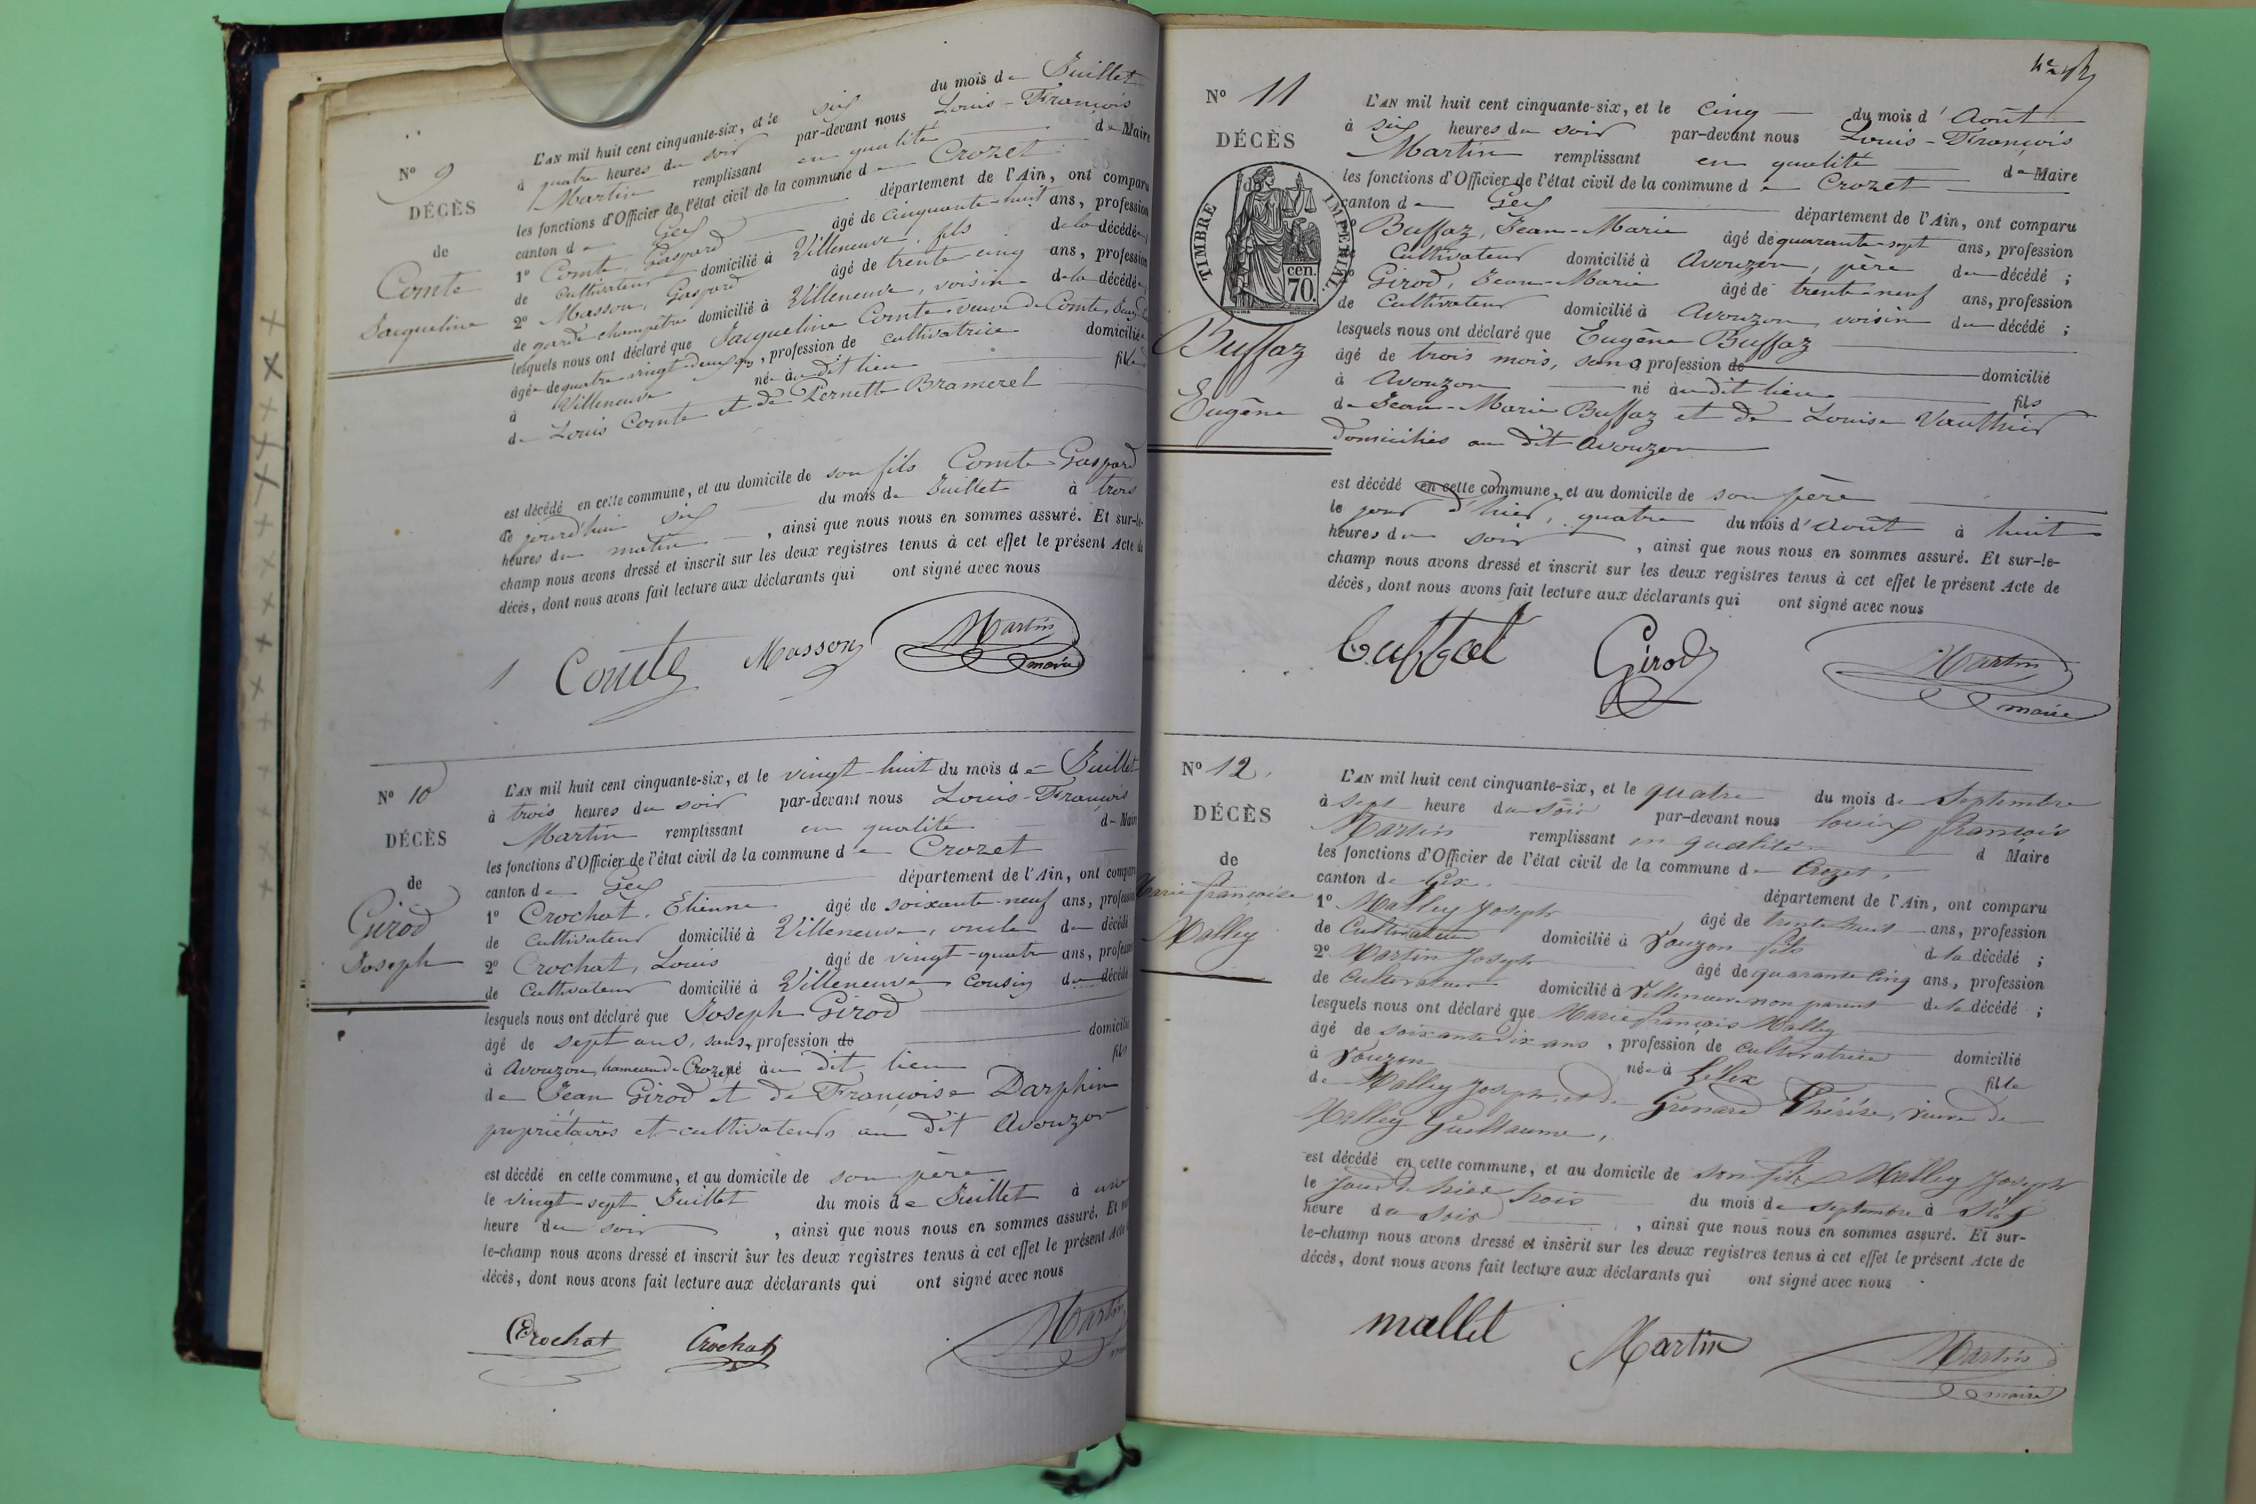 N° 9
DÉCÈS
de
Comte
Jacqueline
L'AN mil huit cent cinquante-six, et le six du mois de Juillet
à quatre heures du soir par-devant nous Louis-François
Martin remplissant en qualité de Maire
les fonctions d'Officier de l'état civil de la commune de Crozet
canton de Gex département de l'Ain, ont comparu
1° Comte, Gaspard âgé de cinquante-huit ans, profession
de cultivateur domicilié à Villeneuve, fils de la décédée;
2° Masson, Gaspard âgé de trente cinq ans, profession
de garde champêtre domicilié à Villeneuve, voisin de la décédée
lesquels nous ont déclaré que Jacqueline Comte veuve de Comte,
âgée de quatre vingt deux ans, profession de cultivatrice domiciliée
à Villeneuve née au dit lieu fille
de Louis Comte et de Pernette Bramerel
est décédé en cette commune, et au domicile de son fils Comte Gaspard
le jourd'hui six du mois de Juillet à trois
heures du matin, ainsi que nous nous en sommes assuré. Et sur-le-
champ nous avons dressé et inscrit sur les deux registres tenus à cet effet le présent Acte de
décès, dont nous avons fait lecture aux déclarants qui ont signé avec nous
Comte Masson Martin
maire
N° 10
DÉCÈS
de
Girod
Joseph
L'AN mil huit cent cinquante-six, et le vingt-huit du mois de Juillet
à trois heures du soir par-devant nous Louis-François
Martin remplissant en qualité de Maire
les fonctions d'Officier de l'état civil de la commune de Crozet
canton de Gex département de l'Ain, ont comparu
1° Crochat, Etienne âgé de soixante-neuf ans, profession
de cultivateur domicilié à Villeneuve, oncle du décédé
2° Crochat, Louis âgé de vingt-quatre ans, profession
de cultivateur domicilié à Villeneuve cousin du décédé
lesquels nous ont déclaré que Joseph Girod
âgé de sept ans, sans profession de domicilié
à Avouzon, hameau de Crozet né au dit lieu fils
de Jean Girod et de Françoise Darphin
propriétaires et cultivateurs au dit Avouzon
est décédé en cette commune, et au domicile de son père
le vingt sept Juillet du mois de Juillet à une
heure du soir, ainsi que nous nous en sommes assuré. Et sur
le-champ nous avons dressé et inscrit sur les deux registres tenus à cet effet le présent Acte
décès, dont nous avons fait lecture aux déclarants qui ont signé avec nous
Crochat Crochat Martin
N° 11
DÉCÈS
TIMBRE IMPERIAL
cen.
70.
Buffaz
Eugène
L'AN mil huit cent cinquante-six, et le cinq du mois d'Août
à six heures du soir par-devant nous Louis-François
Martin remplissant en qualité de Maire
les fonctions d'Officier de l'état civil de la commune de Crozet
canton de Gex département de l'Ain, ont comparu
Buffaz, Jean-Marie âgé de quarante-sept ans, profession
Cultivateur domicilié à Avouzon, père du décédé;
Girod, Jean-Marie âgé de trente-neuf ans, profession
de Cultivateur domicilié à Avouzon voisin du décédé;
lesquels nous ont déclaré que Eugène Buffaz
âgé de trois mois, sans profession de domicilié
à Avouzon né au dit lieu fils
de Jean-Marie Buffaz et de Louise Vauthier
domiciliés au dit Avouzon
est décédé en cette commune, et au domicile de son père
le jour d'hier, quatre du mois d'Août à huit
heures du soir, ainsi que nous nous en sommes assuré. Et sur-le-
champ nous avons dressé et inscrit sur les deux registres tenus à cet effet le présent Acte de
décès, dont nous avons fait lecture aux déclarants qui ont signé avec nous
Girod Martin
maire
N° 12.
DÉCÈS
de
Marie françoise
Malley
L'AN mil huit cent cinquante-six, et le quatre du mois de Septembre
à sept heure du soir par-devant nous louis françois
Martin remplissant en qualité d Maire
les fonctions d'Officier de l'état civil de la commune de Crozet,
canton de Gex. département de l'Ain, ont comparu
1° Malley Joseph, âgé de trente huit ans, profession
de Cultivateur domicilié à Vouzon fils de la décédé;
2° Martin Joseph âgé de quarante cinq ans, profession
de Cultivateur domicilié à Villeneuve non parent de la décédé;
lesquels nous ont déclaré que Marie françois Malley
âgé de soixante dix ans, profession de Cultivatrice domicilié
à Vouzon née à Lelex fille
de Malley Joseph, et de Grenard Thérèse, veuve de
Malley Guillaume,
est décédé en cette commune, et au domicile de son fils Malley Joseph
le jour d hier trois du mois de septembre à Six
heure du soir, ainsi que nous nous en sommes assuré. Et sur-
le-champ nous avons dressé et inscrit sur les deux registres tenus à cet effet le présent Acte de
décès, dont nous avons fait lecture aux déclarants qui ont signé avec nous
mallet Martin Martin
maire